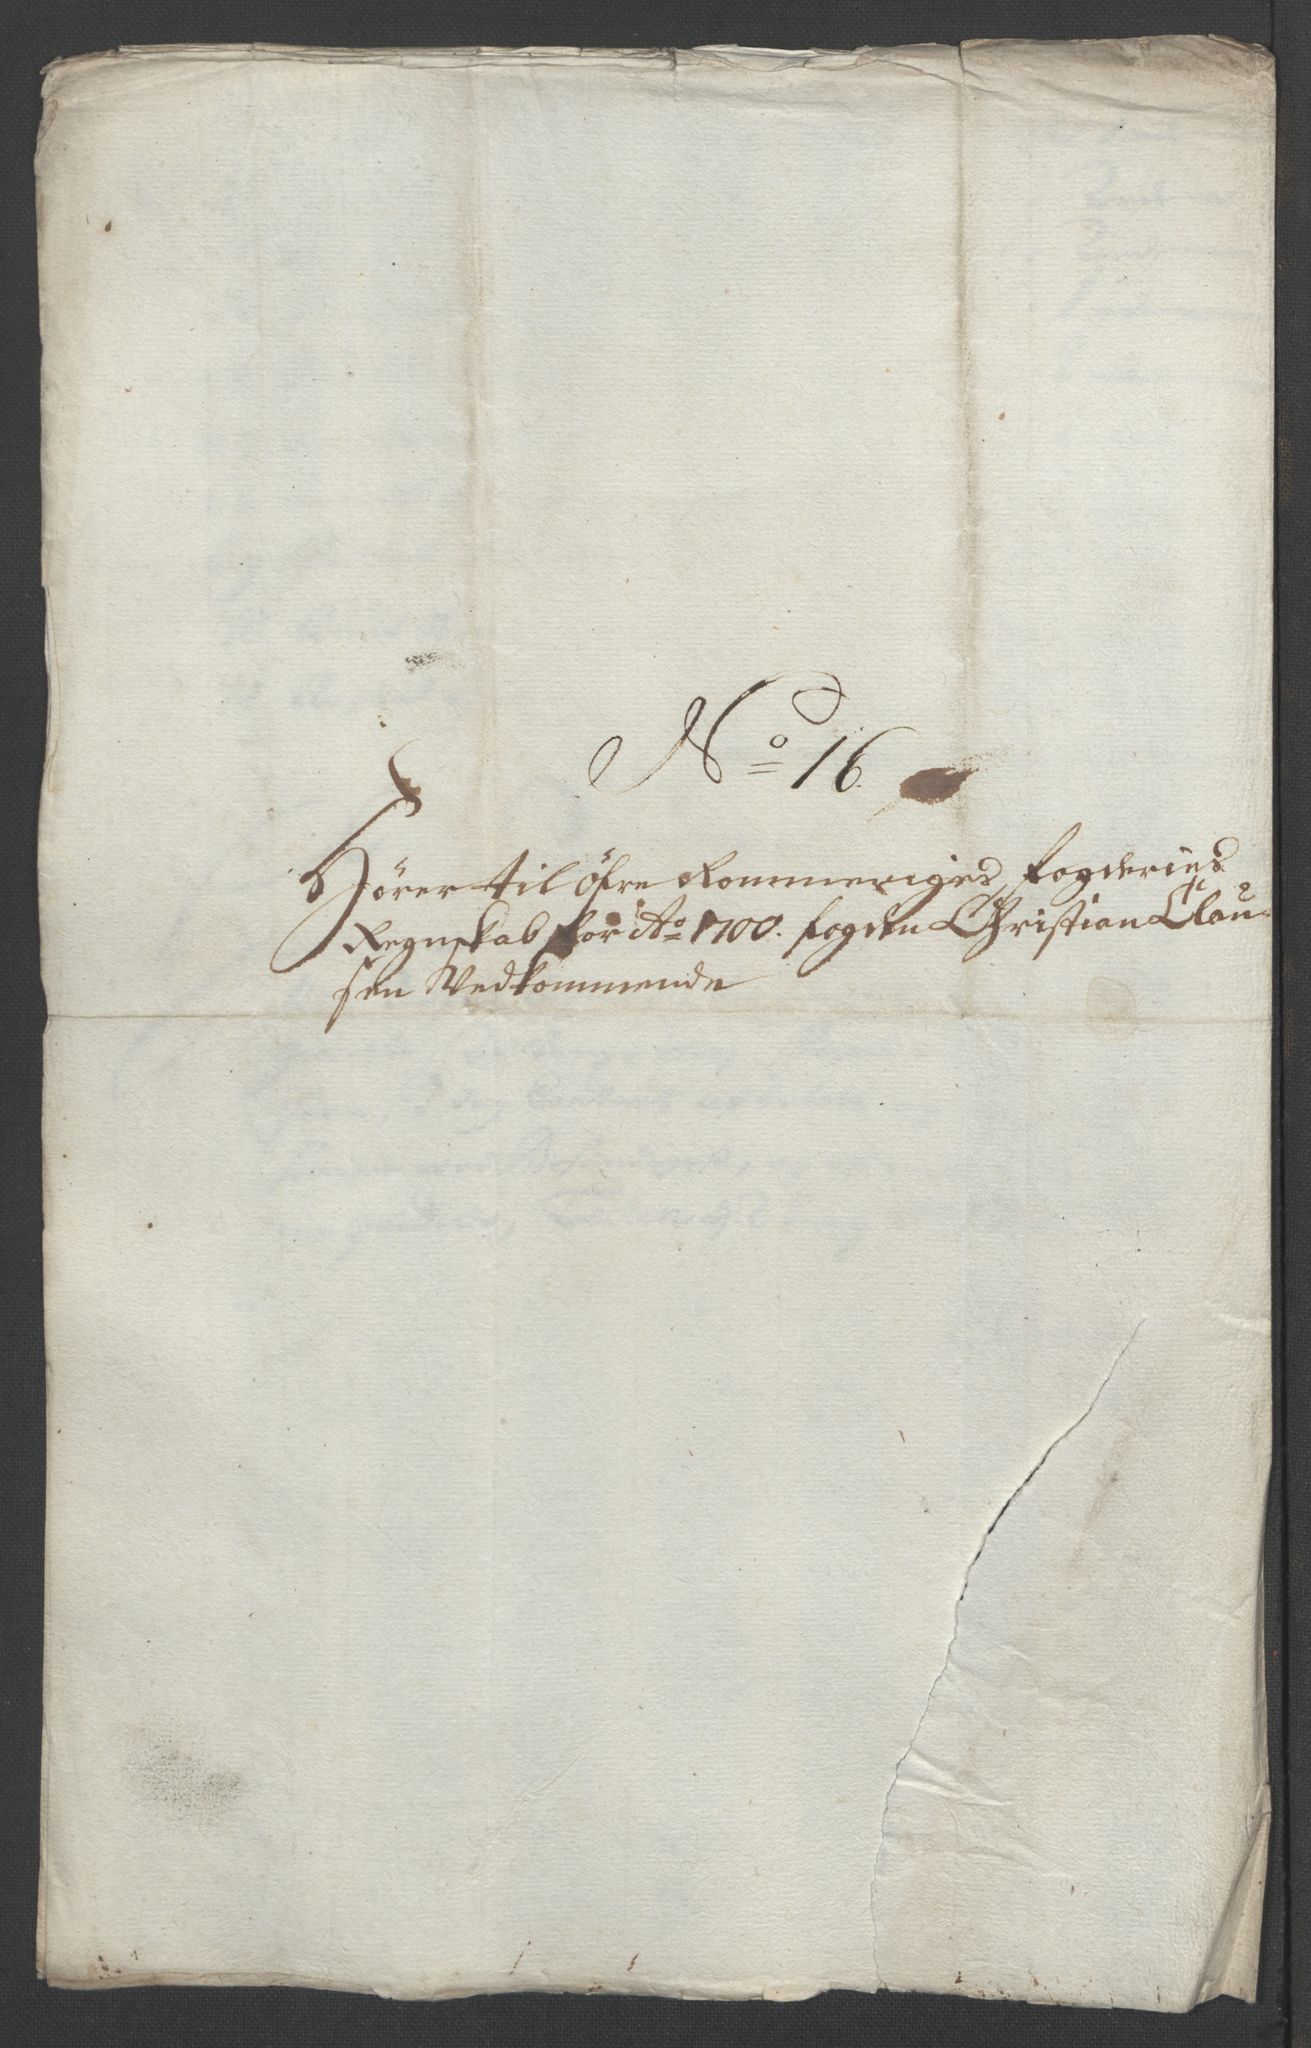 No 16
Hörer til Öfre Rommeriges fogderies
Regnskab for Ao 1700. fogden Christian Clau-
sen Vedkommende